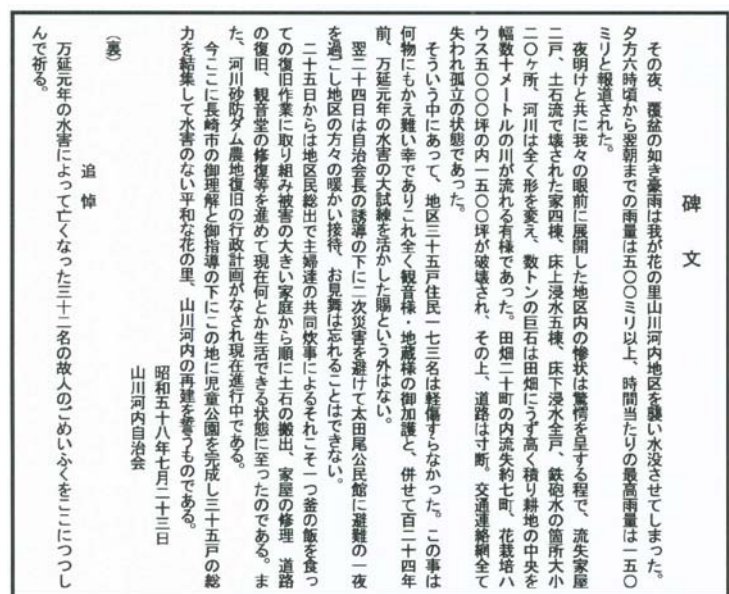 碑文
その夜、覆盆の如き豪雨は我が花の里山川河内地区を襲い水没させてしまった。
夕方六時頃から翌朝までの雨量は五〇〇ミリ以上、時間当たりの最高雨量は一五〇
ミリと報道された。
夜明けと共に我々の眼前に展開した地区内の惨状は驚愕を呈する程で、流失家屋
二戸、土石流で壊された家四棟、床上浸水五棟、床下浸水全戸、鉄砲水の箇所大小
二〇ヶ所、河川は全く形を変え、数トンの巨石は田畑にうず高く積り耕地の中央を
幅数十メートルの川が流れる有様であった。田畑二十町の内流失約七町、花栽培ハ
ウス五〇〇〇坪の内一五〇〇坪が破壊され、その上、道路は寸断。交通連絡網全て
失われ孤立の状態であった。
そういう中にあって、地区三十五戸住民一七三名は軽傷すらなかった。この事は
何物にもかえ難い幸でありこれ全く観音様・地蔵様の御加護と、併せて百二十四年
前、万延元年の水害の大試練を活かした賜という外はない。
翌二十四日は自治会長の誘導の下に二次災害を避けて太田尾公民館に避難の一夜
を過ごし地区の方々の暖かい接待、お見舞は忘れることはできない。
二十五日からは地区民総出で主婦達の共同炊事によるそれこそ一つ釜の飯を食っ
ての復旧作業に取り組み被害の大きい家庭から順に土石の搬出、家屋の修理 道路
の復旧、観音堂の修復等を進めて現在何とか生活できる状態に至ったのである。ま
た、河川砂防ダム農地復旧の行政計画がなされ現在進行中である。
今ここに長崎市の御理解と御指導の下にこの地に児童公園を完成し三十五戸の総
力を結集して水害のない平和な花の里、山川河内の再建を誓うものである。
昭和五十八年七月二十三日
山川河内自治会
（裏）
追悼
万延元年の水害によって亡くなった三十二名の故人のごめいふくをここにつつし
んで祈る。